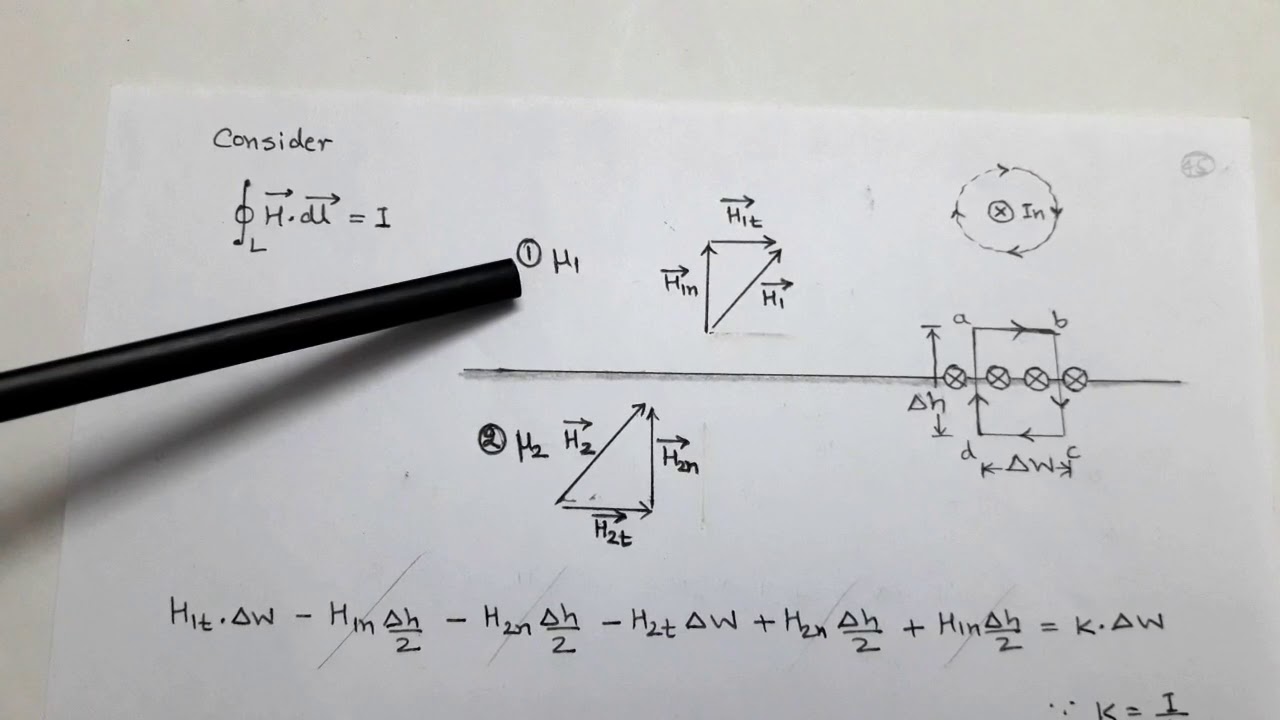 Consider
45
∮_L H⃗·dl⃗ = I
① μ₁
H⃗₁t
H⃗₁n
H⃗₁
⊗ In
a b
⊗ ⊗ ⊗ ⊗
Δh
d c
ΔW
② μ₂
H⃗₂
H⃗₂n
H⃗₂t
H₁t·ΔW − H₁n Δh/2 − H₂n Δh/2 − H₂t ΔW + H₂n Δh/2 + H₁n Δh/2 = K·ΔW
∵ K = I